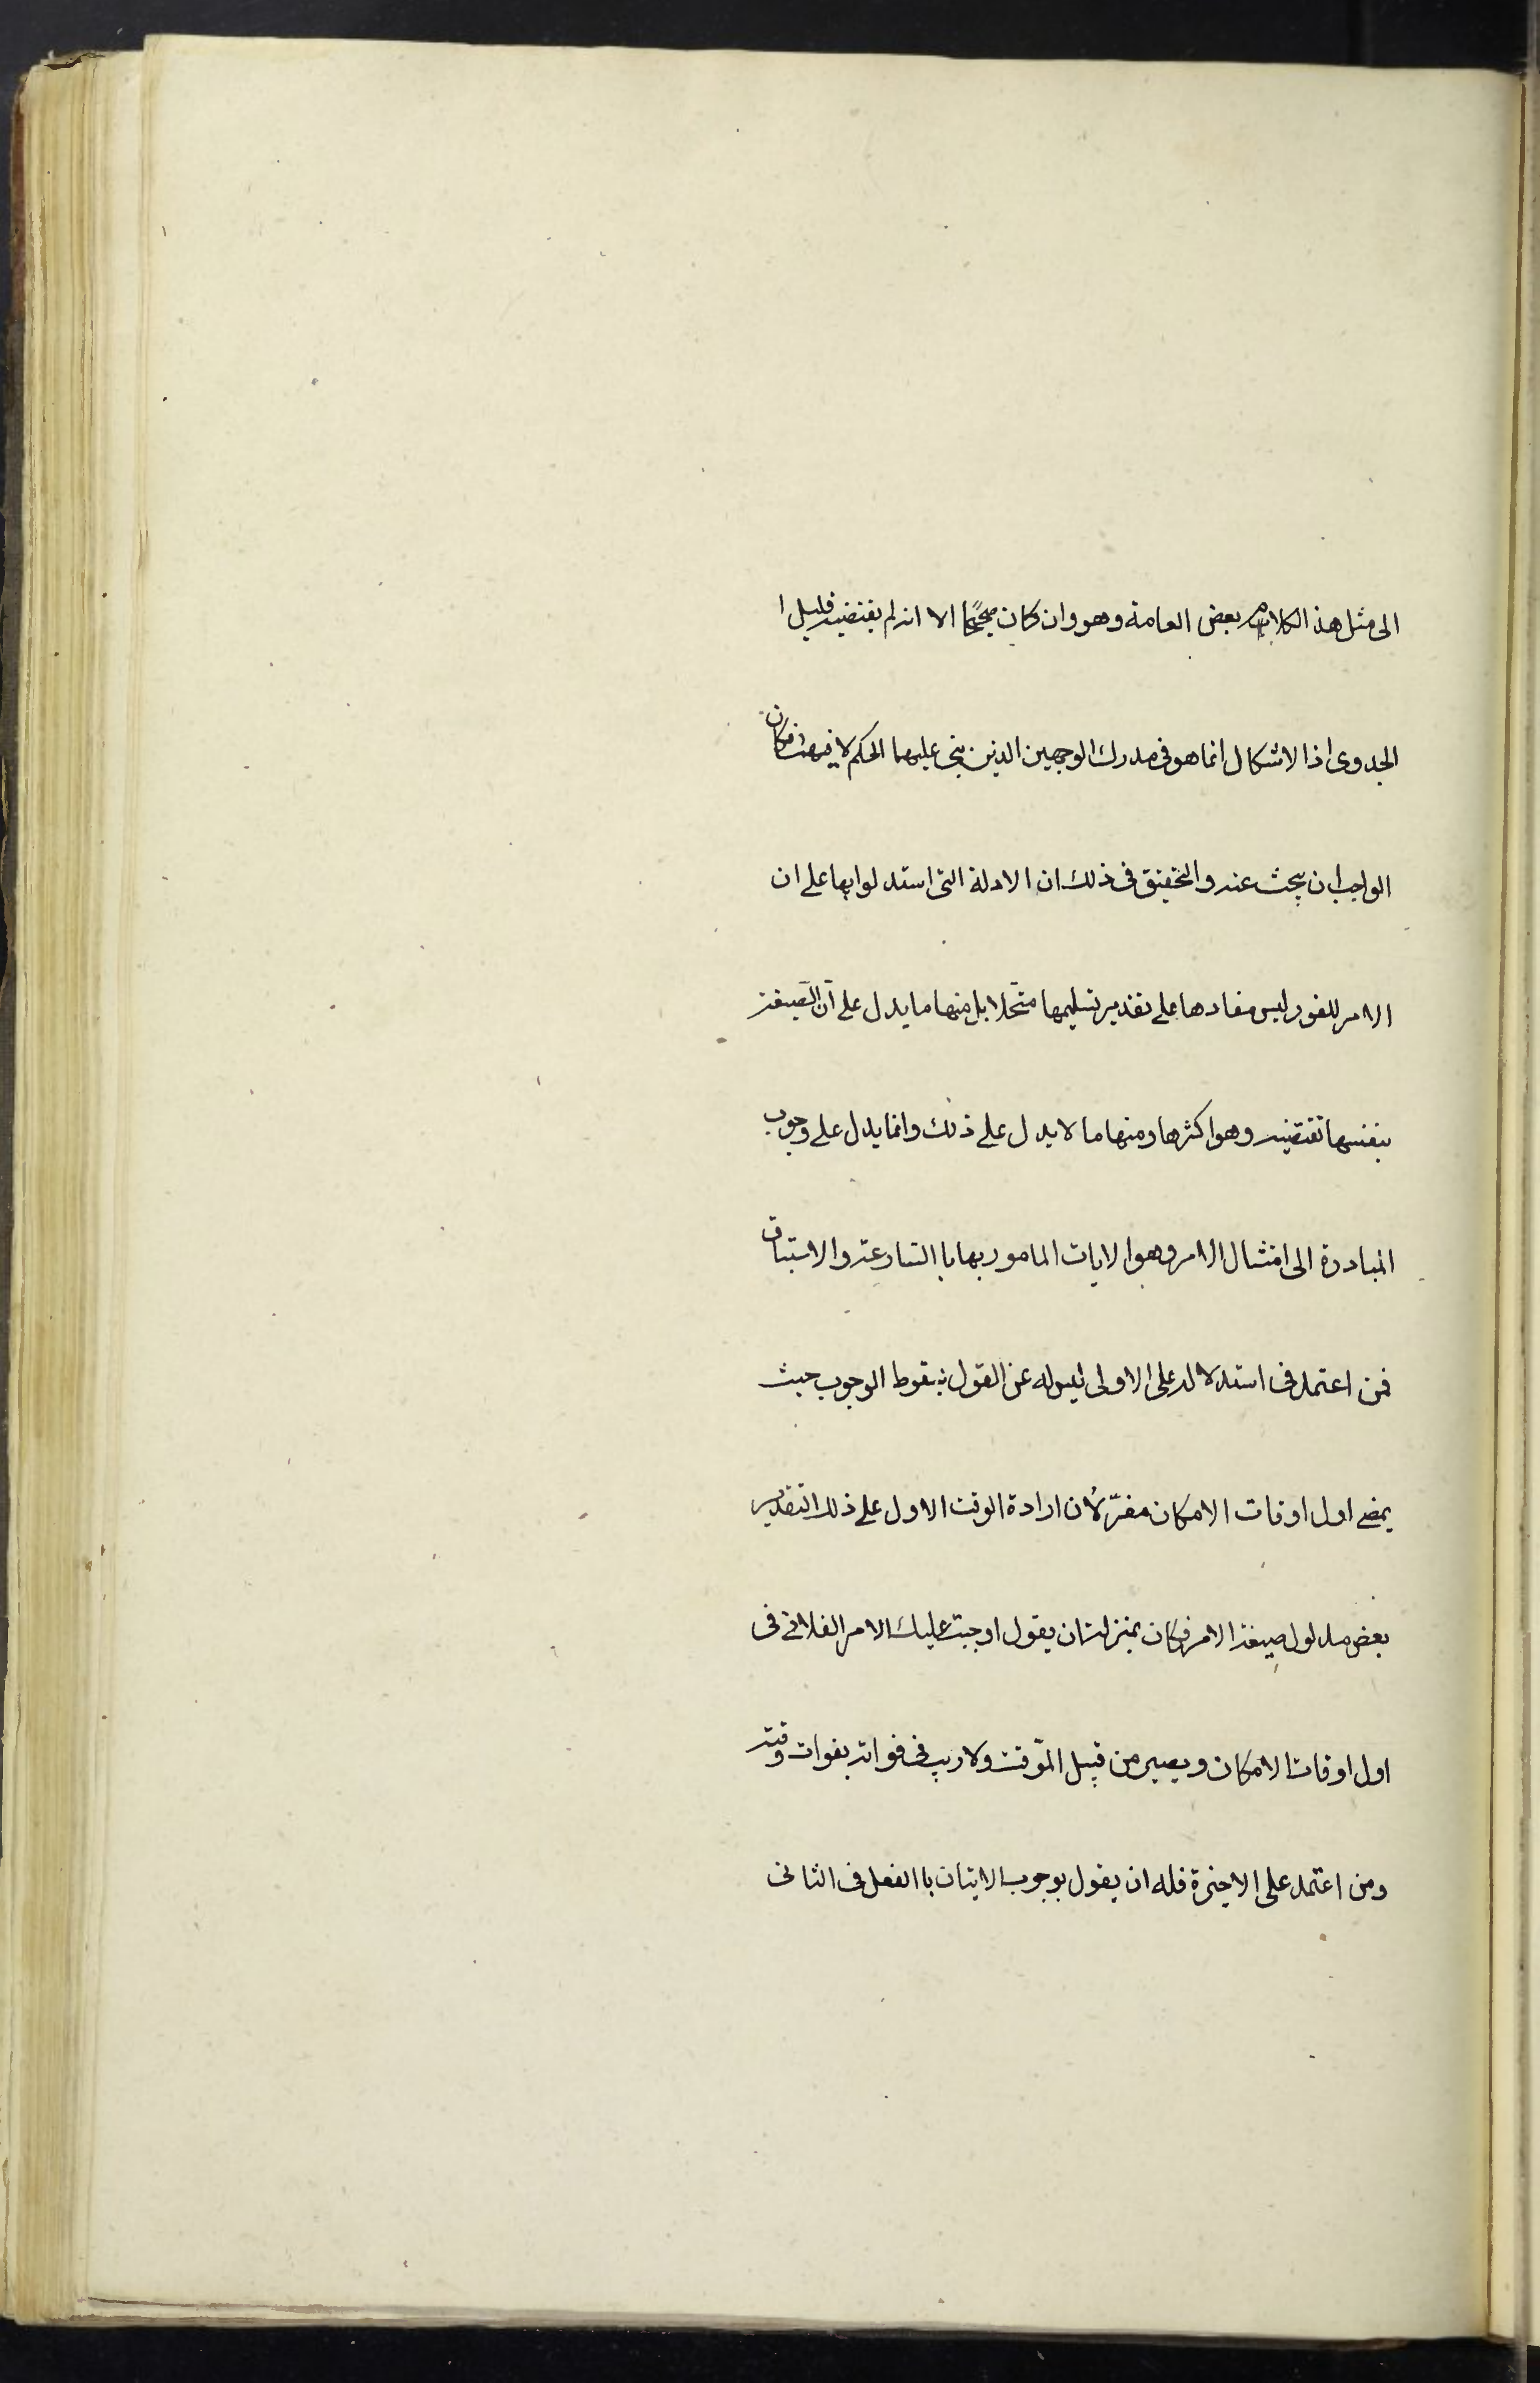 الى مثل هذ الكلام بعض العامة وهو وان كان صحيحًا الا انه لم يقتضيه قليل ا
الجدوى اذا لاشكال انما هو فى مدرك الوجهين الذين بنى عليهما الحكم لا فيهما فكان
الواجب ان يبحث عنه والتحقيق فى ذلك ان الادلة التى استدلوا بها على ان
الامر للفور ليس مفادها على تقدير تسليمها متحدا بل منها ما يدل على أن الصيغة
بنفسها تقتضيه وهو اكثرها ومنها ما لا يدل على ذلك وانما يدل على وجوب
المبادرة الى امتثال الامر وهو الايات المامور بها با المسارعة والاستباق
فمن اعتمد فى استدلاله على الاولى ليس له عن القول بسقوط الوجوب حيث
يمضى اول اوقات الامكان مفرّ لأن ارادة الوقت الاول على ذلك التقدير
بعض مدلول صيغة الامر فكان بمنزلة ان يقول اوجبت عليك الامر الفلانى فى
اول اوقات الامكان ويصير من قبيل الموّقت ولا ريب فى فواته بفوات وقته
ومن اعتمد على الاخيرة فله ان يقول بوجوب الاتيان با الفعل فى الثانى